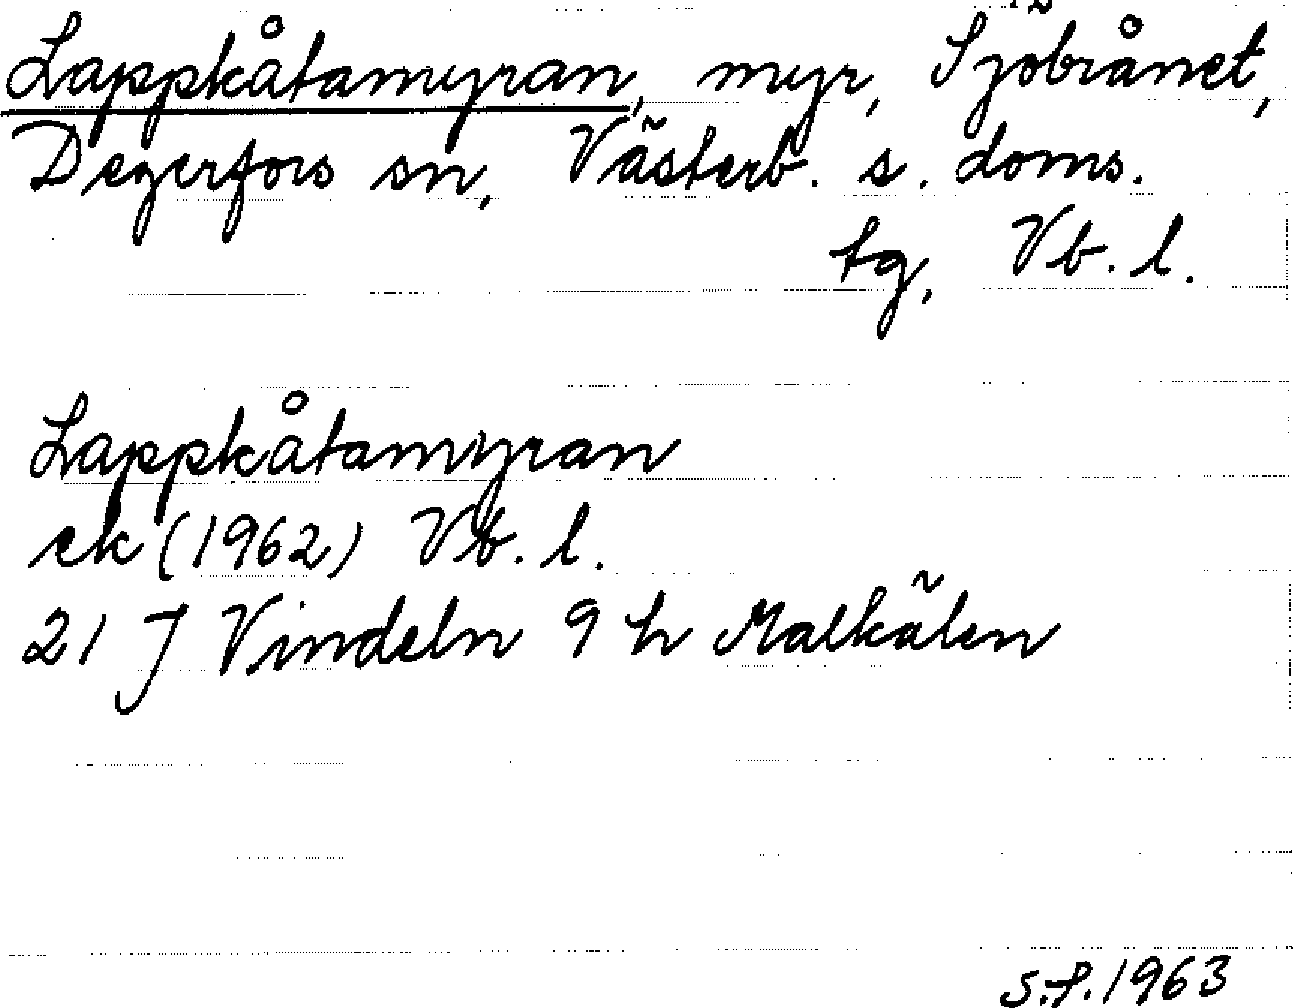 Lappkåtamyran, myr, Sjöbrånet,
Degerfors sn, Västerb. s. doms.
tg, Vb. l.
Lappkåtamyran
ek (1962) Vb. l.
21 J Vindeln 9 h Malkälen
S.f. 1963